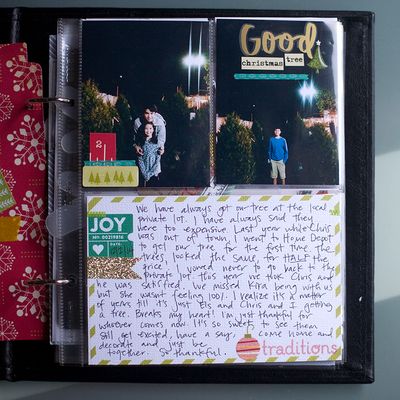 Good
christmas tree
2
JOY
NO 00219816
DATE
We have always got our tree at the local
private lot. I have always said they
were too expensive. Last year while Chris
was out of town, I went to Home Depot
to get our tree for the first time. The
trees looked the same, for HALF the
price! I vowed never to go back to the
private lot. This year we took Chris,
he was satisfied. We missed Kira being with us
but she wasn't feeling 100%. I realize it's a matter
of years til it's just Els and Chris and I getting
a tree. Breaks my heart! I'm just thankful for
whoever comes now. It's so sweet to see them
still get excited, have a say, come home and
decorate and just be
together. So thankful.
traditions